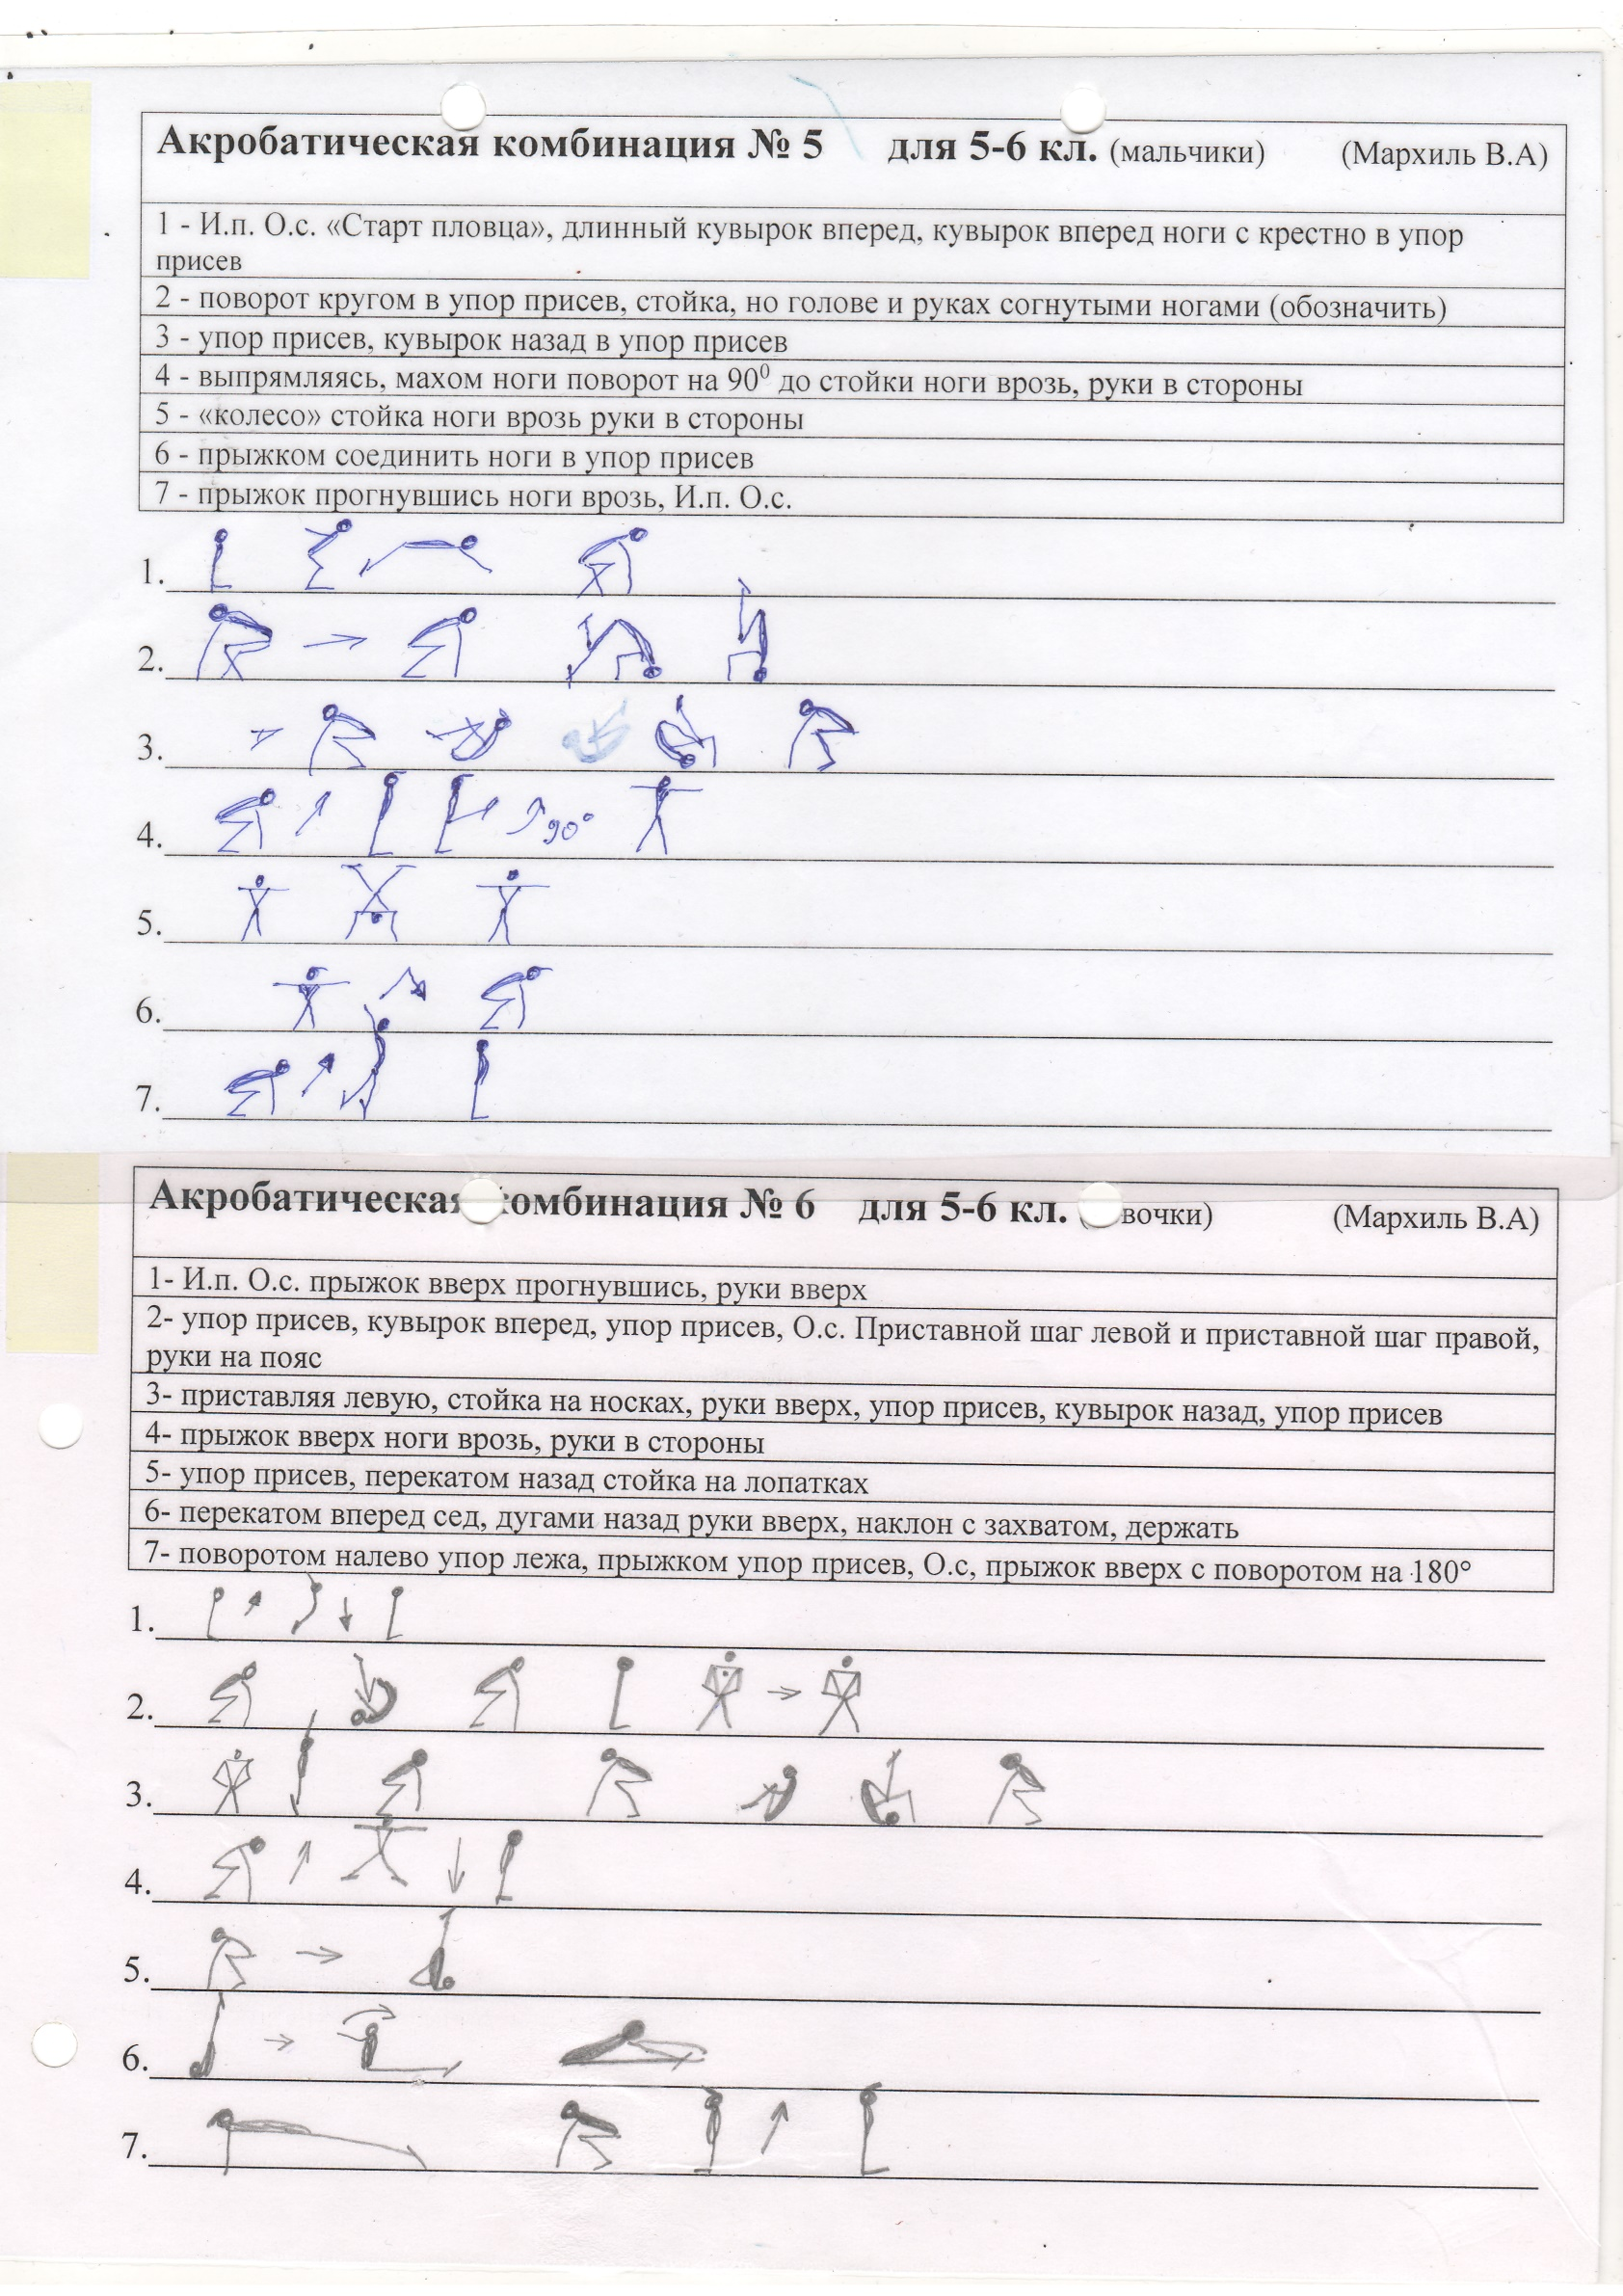 Акробатическая комбинация № 5 для 5-6 кл. (мальчики) (Мархиль В.А)
1 - И.п. О.с. «Старт пловца», длинный кувырок вперед, кувырок вперед ноги с крестно в упор
присев
2 - поворот кругом в упор присев, стойка, но голове и руках согнутыми ногами (обозначить)
3 - упор присев, кувырок назад в упор присев
4 - выпрямляясь, махом ноги поворот на 90⁰ до стойки ноги врозь, руки в стороны
5 - «колесо» стойка ноги врозь руки в стороны
6 - прыжком соединить ноги в упор присев
7 - прыжок прогнувшись ноги врозь, И.п. О.с.
1.
2.
3.
4. 90°
5.
6.
7.
Акробатическая комбинация № 6 для 5-6 кл. вочки) (Мархиль В.А)
1- И.п. О.с. прыжок вверх прогнувшись, руки вверх
2- упор присев, кувырок вперед, упор присев, О.с. Приставной шаг левой и приставной шаг правой,
руки на пояс
3- приставляя левую, стойка на носках, руки вверх, упор присев, кувырок назад, упор присев
4- прыжок вверх ноги врозь, руки в стороны
5- упор присев, перекатом назад стойка на лопатках
6- перекатом вперед сед, дугами назад руки вверх, наклон с захватом, держать
7- поворотом налево упор лежа, прыжком упор присев, О.с, прыжок вверх с поворотом на 180°
1.
2.
3.
4.
5.
6.
7.